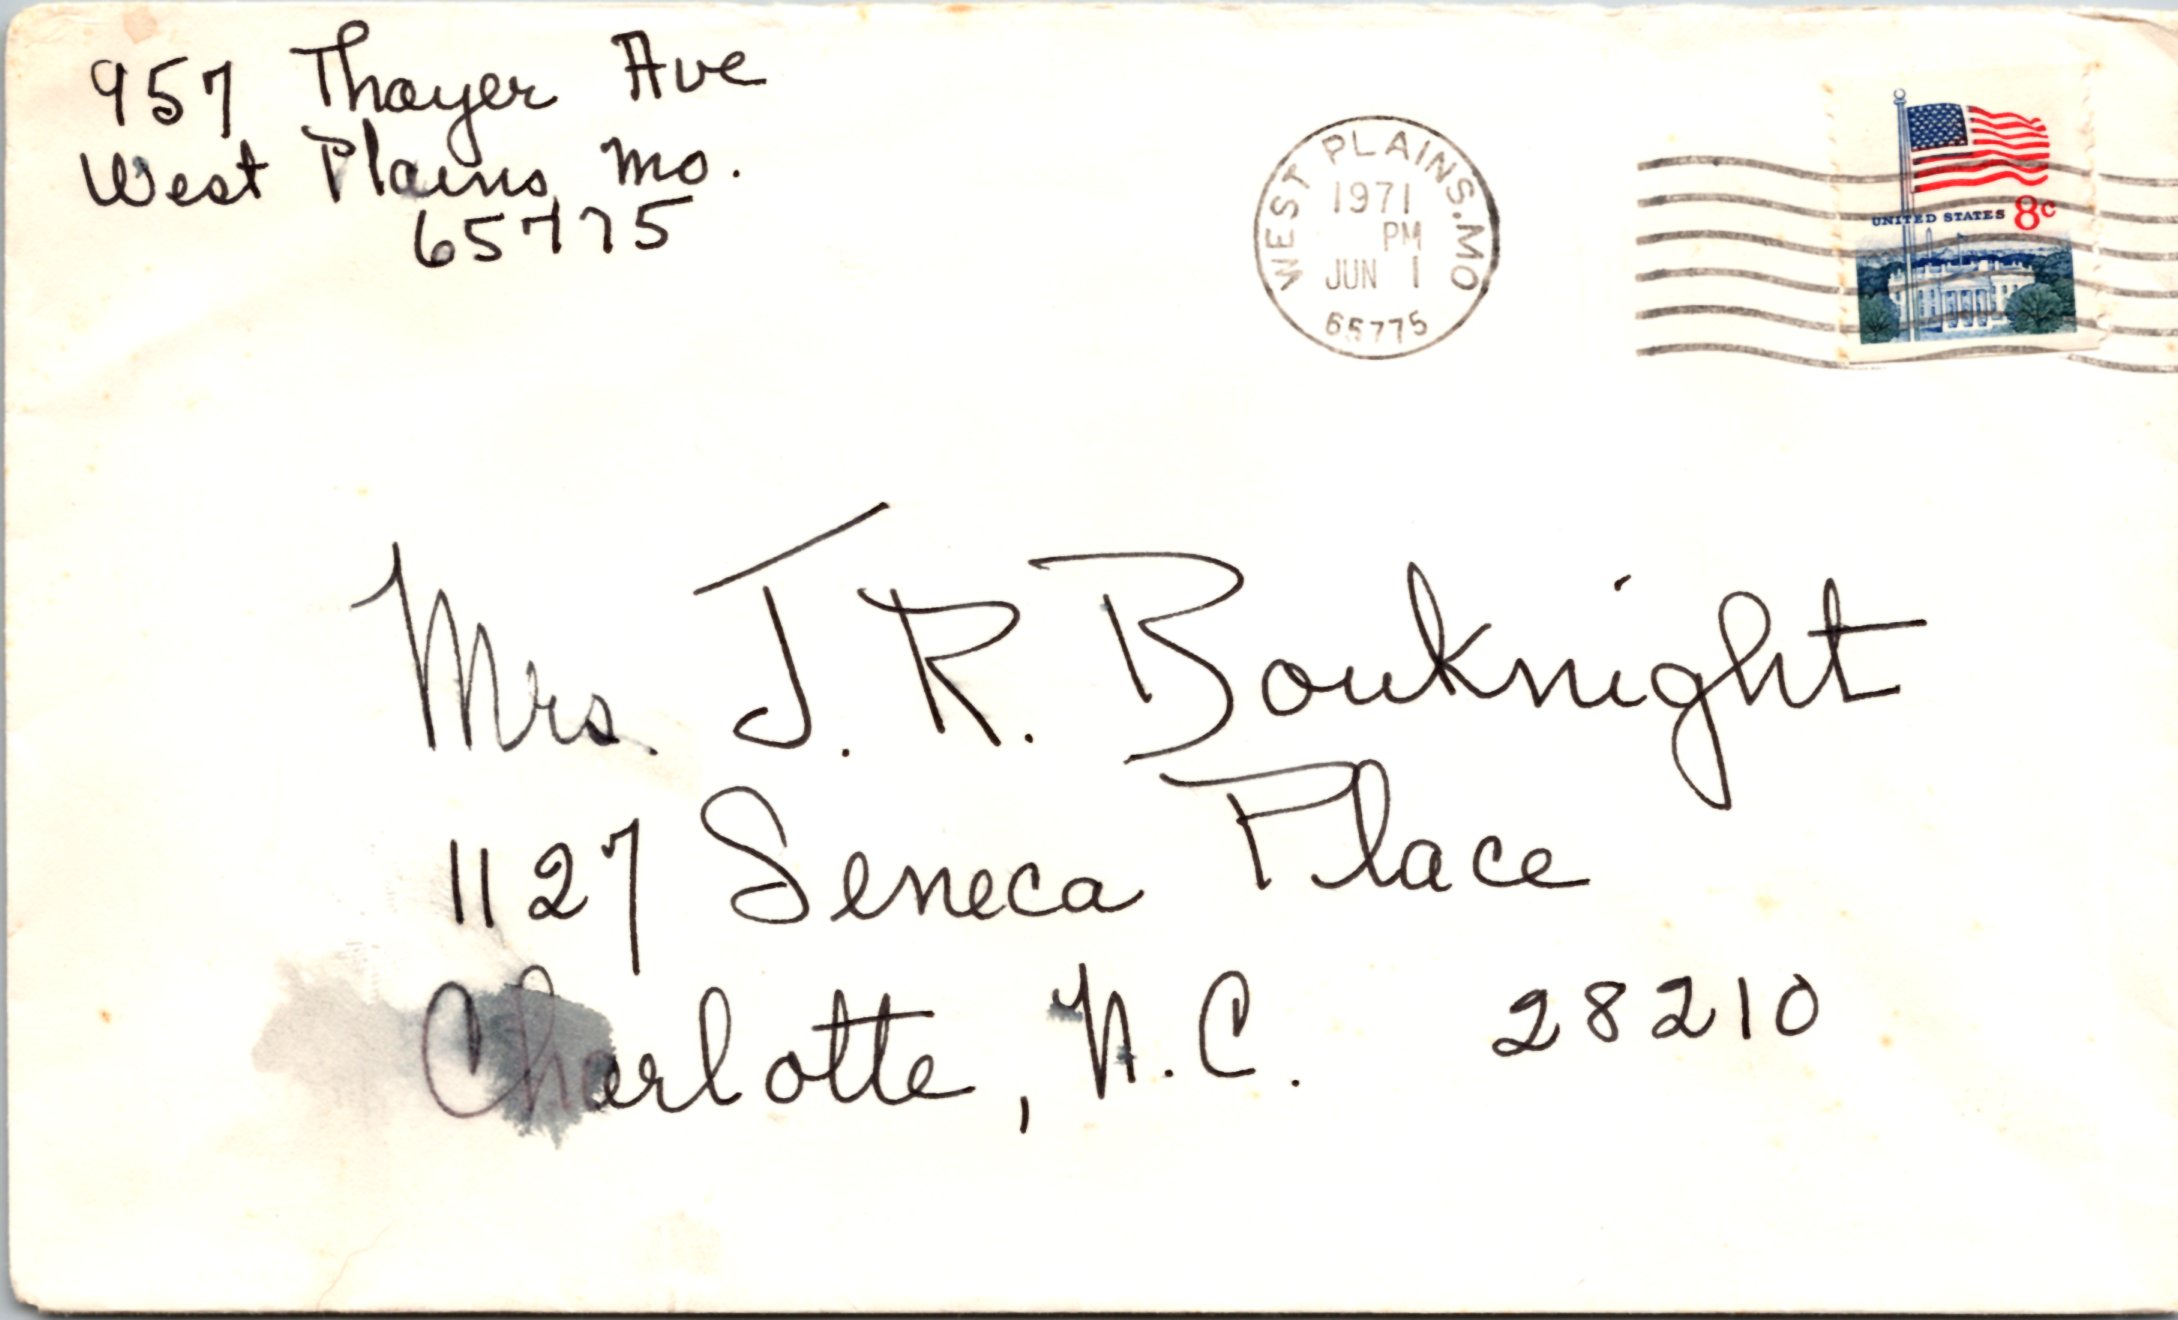 957 Thayer Ave
West Plains, Mo.
65775
WEST PLAINS, MO
1971
PM
JUN 1
65775
UNITED STATES 8c
Mrs. J. R. Bouknight
1127 Seneca Place
Charlotte, N. C. 28210